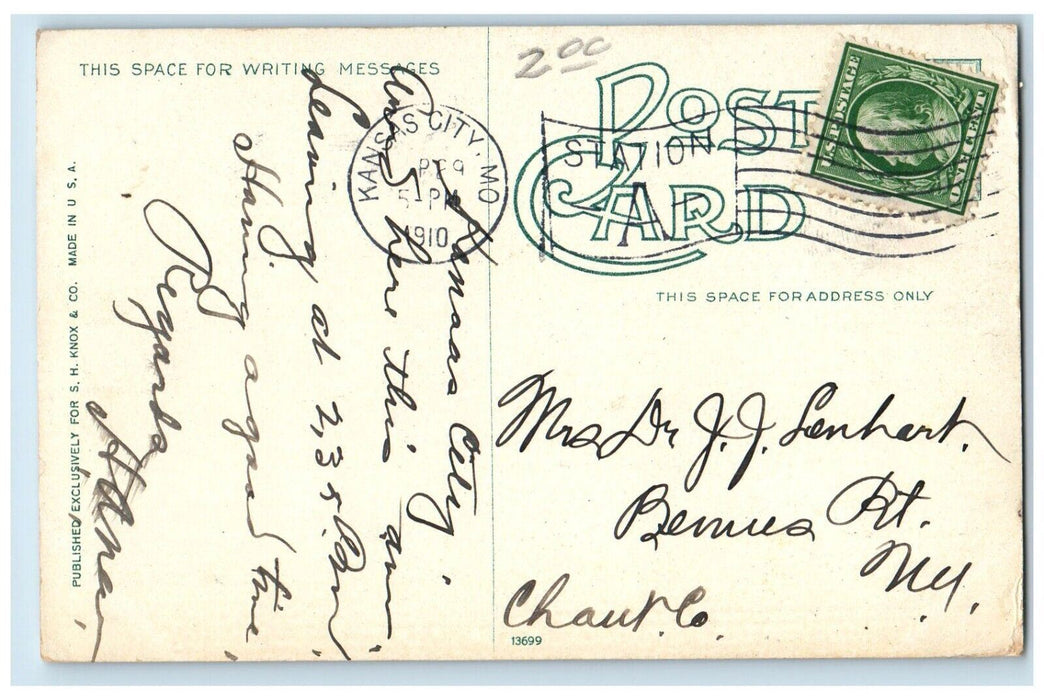 THIS SPACE FOR WRITING MESSAGES
Kansas City
Arr. here this am
Leaving at 2,35 Pm
Having a good time
Regards
PUBLISHED EXCLUSIVELY FOR S. H. KNOX & CO. MADE IN U S, A.
KANSAS CITY, MO
5-PM
1910
STATION
A
2 00
POST CARD
U.S. POSTAGE
ONE CENT
THIS SPACE FOR ADDRESS ONLY
Mrs Dr J. J. Lenhart.
Bemus Pt.
NY.
Chaut. Co.
13699